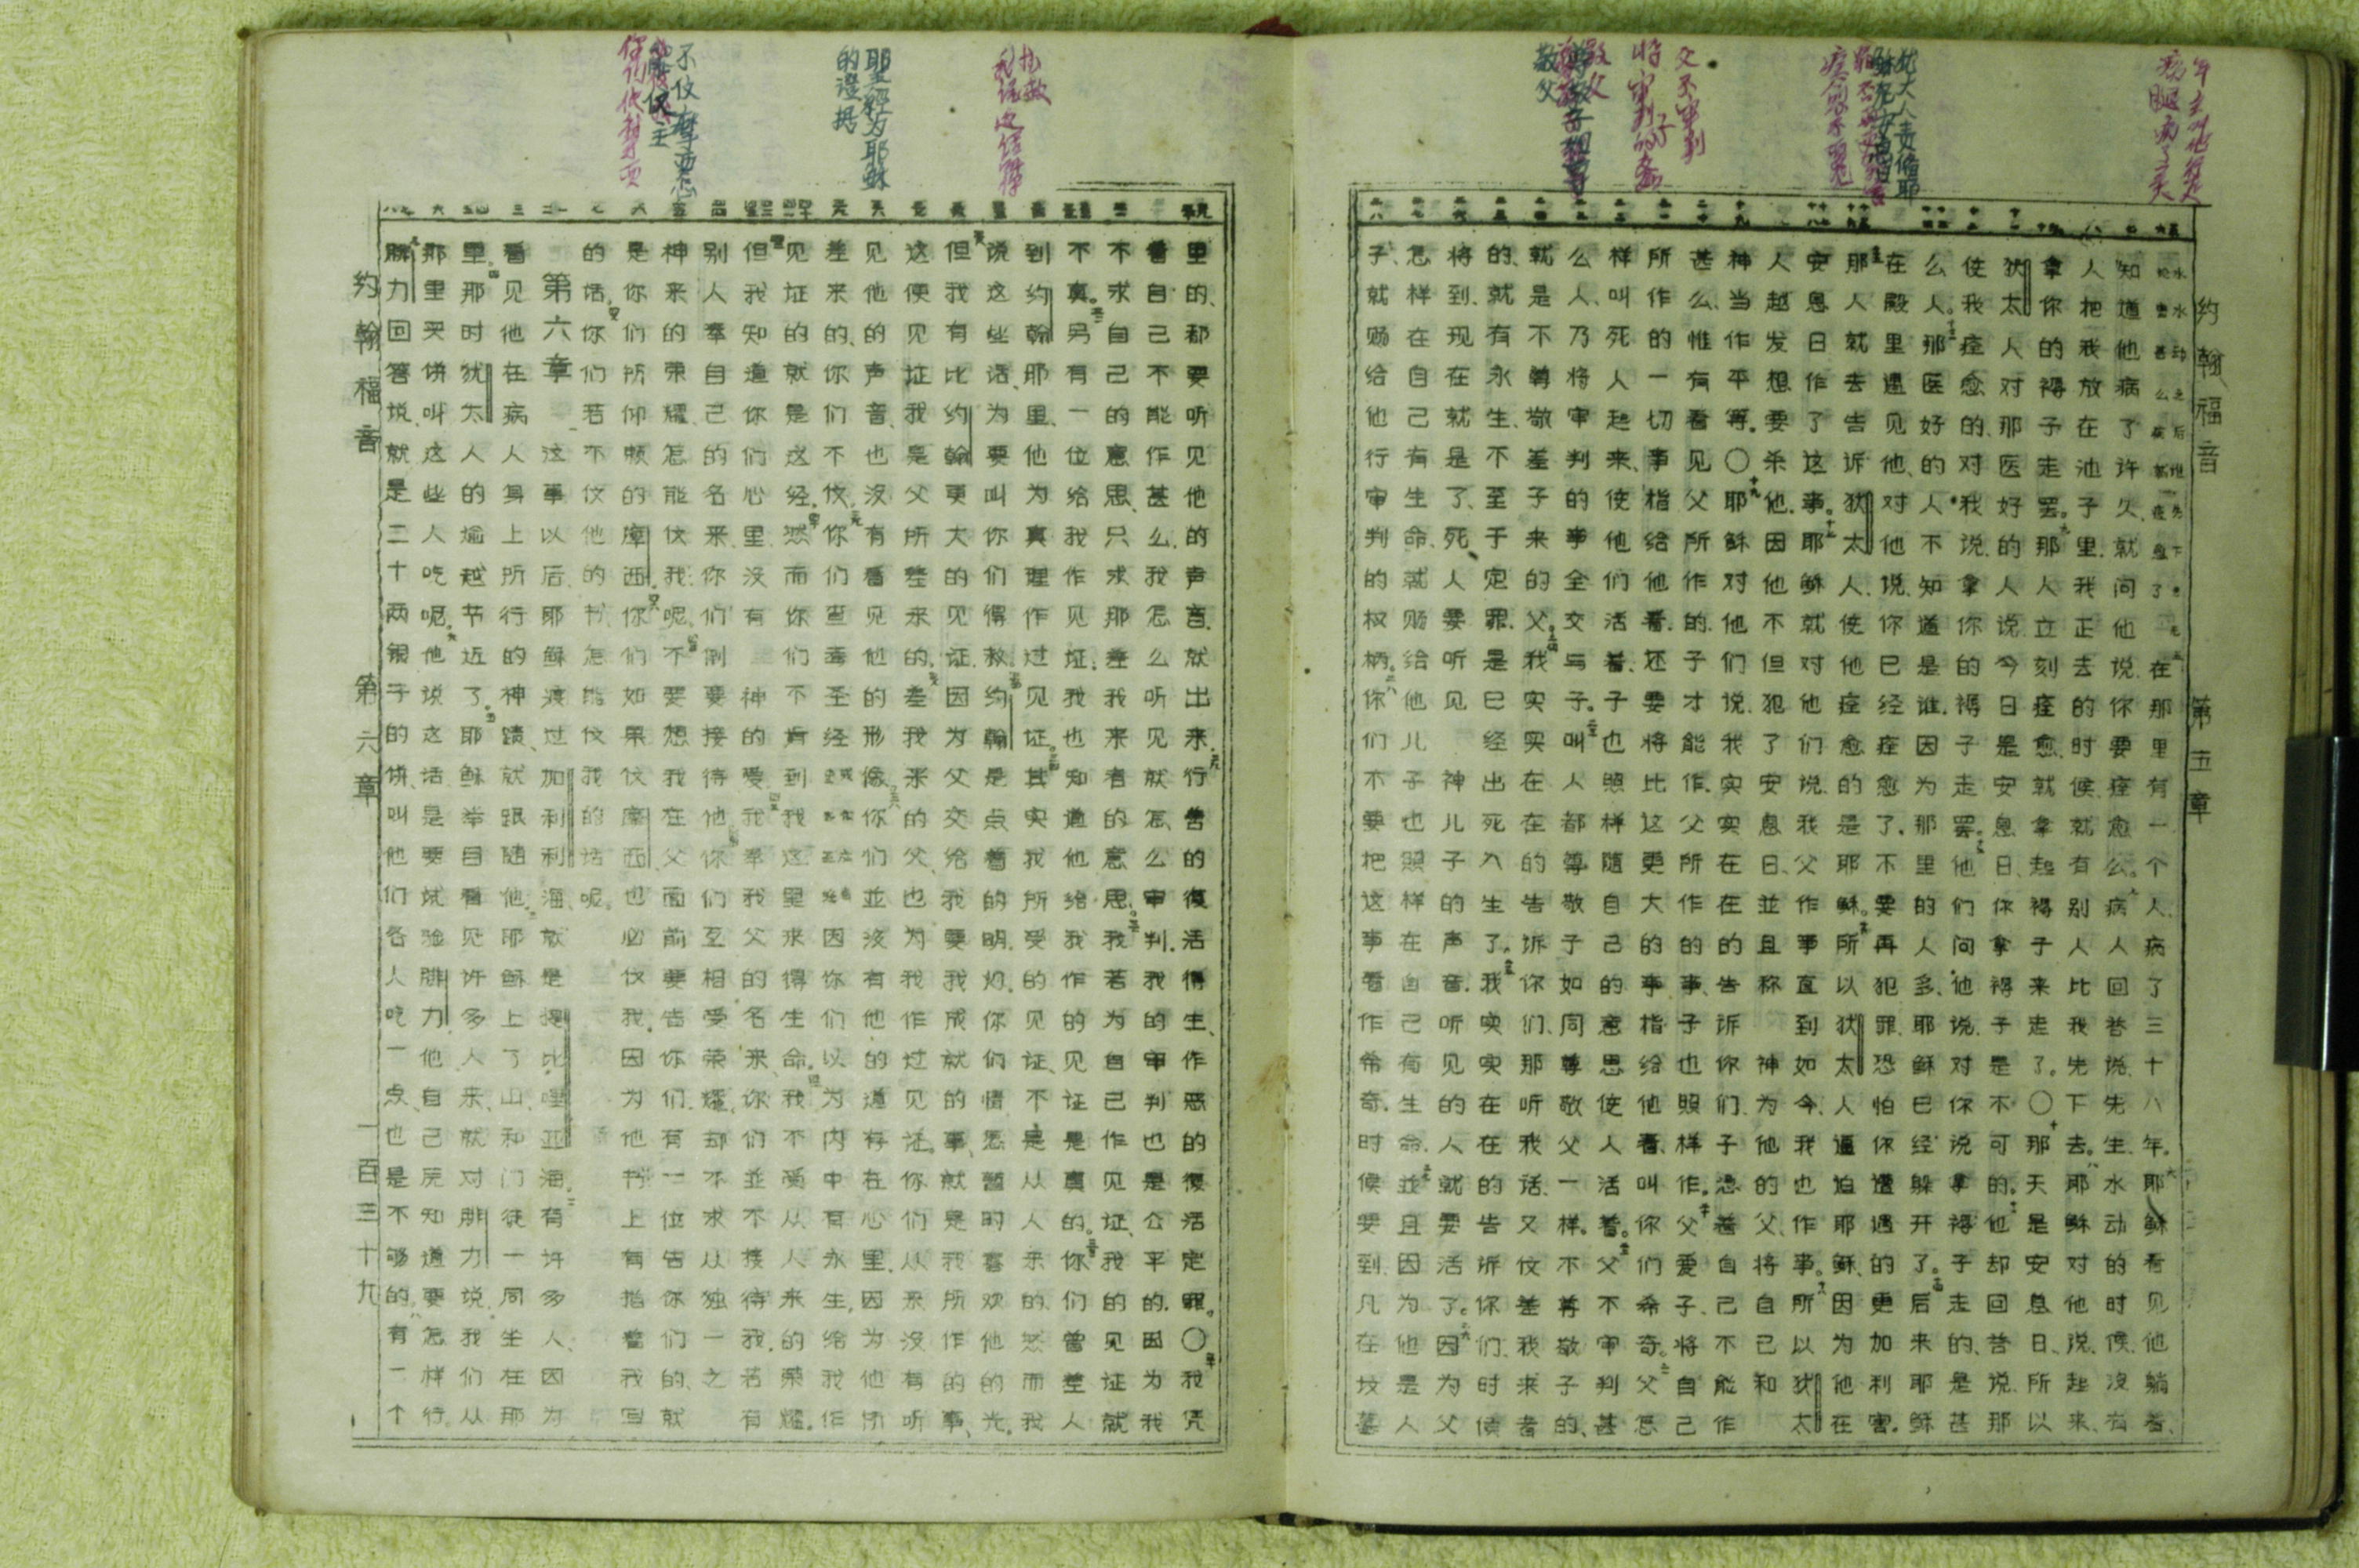 约翰福音 第五章
在那里有一个人、病了三十八年。耶稣看见他躺着、
知道他病了许久、就问他说、你要痊愈么。病人回答说、先生、水动的时候、没有
人把我放在池子里、我正去的时候、就有别人比我先下去。耶稣对他说、起来、
拿你的褥子走罢。那人立刻痊愈、就拿起褥子来走了。〇那天是安息日、所以
犹太人对那医好的人说、今日是安息日、你拿褥子是不可的。他却回答说、那
使我痊愈的、对我说、拿你的褥子走罢。他们问他说、对你说拿褥子走的、是甚
么人。那医好的人不知道是谁、因为那里的人多、耶稣已经躲开了。后来耶稣
在殿里遇见他、对他说、你已经痊愈了、不要再犯罪、恐怕你遭遇的更加利害。
那人就去告诉犹太人、使他痊愈的是耶稣。所以犹太人逼迫耶稣、因为他在
安息日作了这事。耶稣就对他们说、我父作事直到如今、我也作事。所以犹太
人越发想要杀他、因他不但犯了安息日、並且称 神为他的父、将自己和
神当作平等。〇耶稣对他们说、我实实在在的告诉你们、子凭着自己不能作
甚么、惟有看见父所作的、子才能作、父所作的事、子也照样作。父爱子、将自己
所作的一切事指给他看、还要将比这更大的事指给他看、叫你们希奇。父怎
样叫死人起来、使他们活着、子也照样随自己的意思使人活着。父不审判甚
么人、乃将审判的事全交与子。叫人都尊敬子如同尊敬父一样。不尊敬子的、
就是不尊敬差子来的父。我实实在在的告诉你们、那听我话、又伩差我来者
的、就有永生、不至于定罪、是已经出死入生了。我实实在在的告诉你们、时候
将到、现在就是了、死人要听见 神儿子的声音、听见的人就要活了。因为父
怎样在自己有生命、就赐给他儿子也照样在自己有生命、並且因为他是人
子、就赐给他行审判的权柄。你们不要把这事看作希奇、时候要到、凡在坟墓
里的、都要听见他的声音、就出来、行善的復活得生、作恶的復活定罪。〇我凭
着自己不能作甚么、我怎么听见就怎么审判、我的审判也是公平的、因为我
不求自己的意思、只求那差我来者的意思。我若为自己作见证、我的见证就
不真。另有一位给我作见证、我也知道他给我作的见证是真的。你们曾差人
到约翰那里、他为真理作过见证。其实我所受的见证不是从人来的、然而我
说这些话、为要叫你们得救。约翰是点着的明灯、你们情愿暂时喜欢他的光。
但我有比约翰更大的见证、因为父交给我要我成就的事、就是我所作的事、
这便见证我是父所差来的。差我来的父、也为我作过见证。你们从来没有听
见他的声音、也没有看见他的形像。你们並没有他的道存在心里、因为他所
差来的、你们不伩。你们查考圣经 因你们以为内中有永生、给我作
见证的就是这经。然而你们不肯到我这里来得生命。我不受从人来的荣耀。
但我知道你们心里、没有 神的爱。我奉我父的名来、你们並不接待我、若有
别人奉自己的名来、你们倒要接待他。你们互相受荣耀、却不求从独一之
神来的荣耀、怎能伩我呢。不要想我在父面前要告你们、有一位告你们的、就
是你们所仰赖的摩西。你们如果伩摩西、也必伩我、因为他书上有指着我写
的话、你们若不伩他的书、怎能伩我的话呢。
第六章 这事以后、耶稣渡过加利利海、就是提比哩亚海。有许多人、因为
看见他在病人身上所行的神蹟、就跟随他。耶稣上了山、和门徒一同坐在那
里。那时犹太人的逾越节近了。耶稣举目看见许多人来、就对腓力说、我们从
那里买饼叫这些人吃呢。他说这话是要试验腓力、他自己原知道要怎样行。
腓力回答说、就是二十两银子的饼、叫他们各人吃一点、也是不够的。有一个
约翰福音 第六章 一百三十九
父不审判
聖經为耶稣
的證据